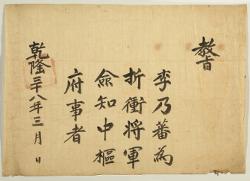 教旨
李乃蕃為
折衝將軍
僉知中樞
府事者
乾隆三十八年三月　日